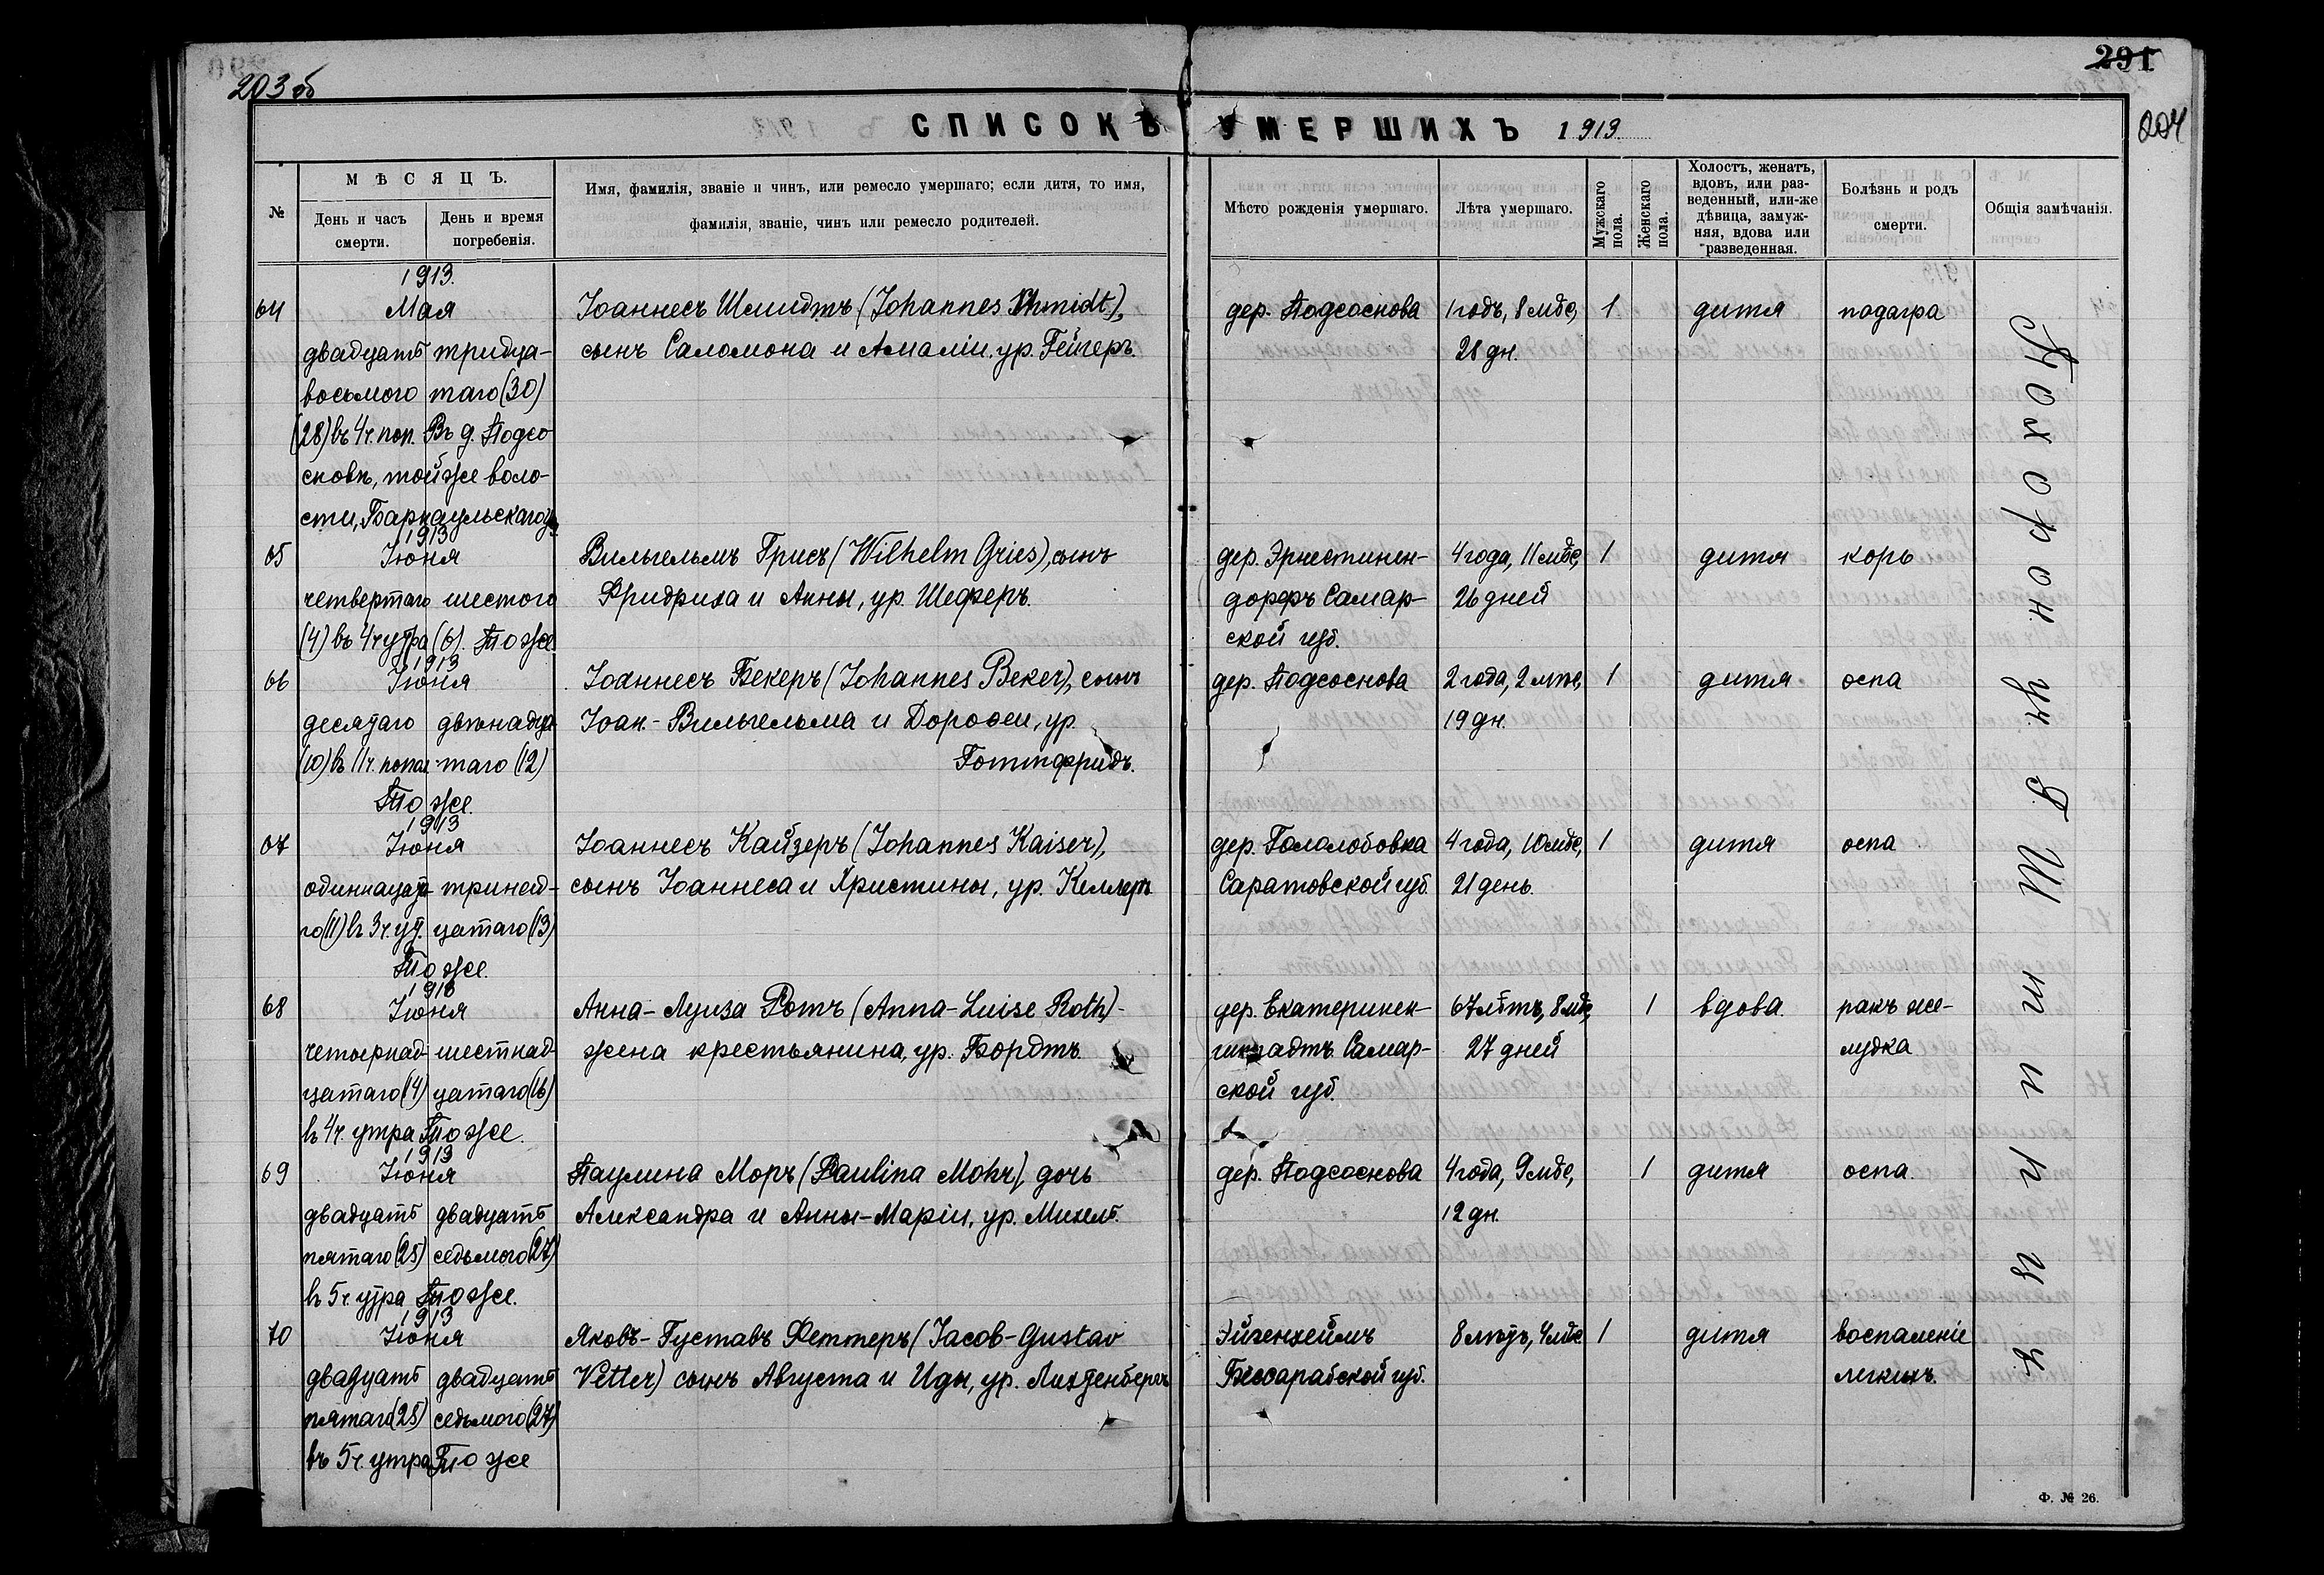 203 об
291
204
СПИСОКЪ УМЕРШИХЪ 1913.
№
МѢСЯЦЪ.
День и часъ смерти.
День и время погребенія.
Имя, фамилія, званіе и чинъ, или ремесло умершаго; если дитя, то имя,
фамилія, званіе, чинъ или ремесло родителей.
Мѣсто рожденія умершаго.
Лѣта умершаго.
Мужскаго пола.
Женскаго пола.
Холостъ, женатъ,
вдовъ, или раз-
веденный, или-же
дѣвица, замуж-
няя, вдова или
разведенная.
Болѣзнь и родъ
смерти.
Общія замѣчанія.
1913.
64 Мая Іоаннесъ Шмидтъ (Iohannes Schmidt), дер. Подсоснова 1 годъ, 8 мѣс, 1 дитя подагра
двадцать тридца- сынъ Саломона и Амаліи. ур. Гейгеръ. 28 дн.
восьмого таго (30)
(28) въ 4 ч. поп. Въ д. Подсо
сновѣ, той же воло-
сти, Барнаульскаго у.
1913
65 Іюня Вильгельмъ Грисъ (Wilhelm Gries), сынъ дер. Эрнестинен- 4 года, 11 мѣс, 1 дитя корь
четвертаго шестого Фридриха и Анны, ур. Шеферъ. дорфъ Самар- 26 дней
(4) въ 4 ч утра (6). Тоже. ской губ.
1913
66 Іюня Іоаннесъ Бекеръ (Iohannes Beker), сынъ дер. Подсоснова 2 года, 2 мѣс, 1 дитя оспа
десятаго двѣнадца Іоан.-Вильгельма и Доротеи, ур. 19 дн.
(10) въ 11 ч. попол -таго (12) Готтфридъ.
Тоже.
1913
67 Іюня Іоаннесъ Кайзеръ (Iohannes Kaiser), дер. Гололобовка 4 года, 10 мѣс, 1 дитя оспа
одиннадцата- тринад- сынъ Іоаннеса и Христины, ур. Келлеръ Саратовской губ. 21 день.
го (11) въ 3 ч. ут. цатаго (13)
Тоже.
1913
68 Іюня Анна-Луиза Ротъ (Anna-Luise Roth)- дер. Екатеринен- 67 лѣтъ, 8 мѣс, 1 вдова. ракъ же-
четырнад- шестнад- жена крестьянина, ур. Бордтъ. штадтъ Самар- 27 дней лудка
цатаго (14) цатаго (16) ской губ.
въ 4 ч. утра Тоже.
1913
69 Іюня Паулина Моръ (Paulina Mohr), дочь дер. Подсоснова 4 года, 9 мѣс, 1 дитя оспа.
двадцать двадцать Александра и Анны-Маріи, ур. Михель. 12 дн.
пятаго (25) седьмого (27)
въ 5 ч. утра Тоже.
1913
70 Іюня Яковъ-Густавъ Феттеръ (Jacob-Gustav Эйгенхеймъ 8 лѣтъ, 4 мѣс 1 дитя воспаленіе
двадцать двадцать Vetter) сынъ Августа и Иды, ур. Лихтенбергъ Бессарабской губ. легкихъ.
пятаго (25) седьмого (27)
въ 5 ч. утра Тоже
Ф. № 26.